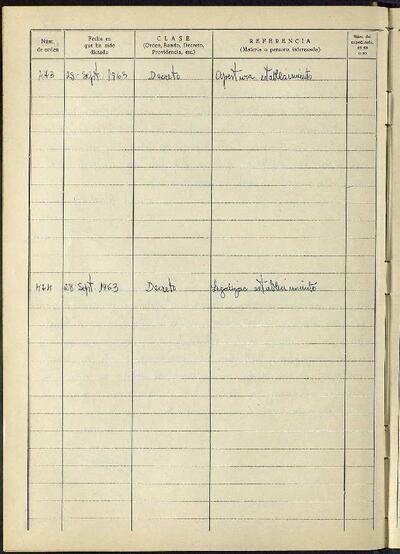 Núm. de orden
Fecha en que ha sido dictada
CLASE
(Orden, Bando, Decreto, Providencia, etc.)
REFERENCIA
(Materia o persona interesada)
Núm. del expediente, en su caso
473 28 Sept. 1963 Decreto Apertura establecimiento
474 28 Sept. 1963 Decreto Legalizac establecimiento